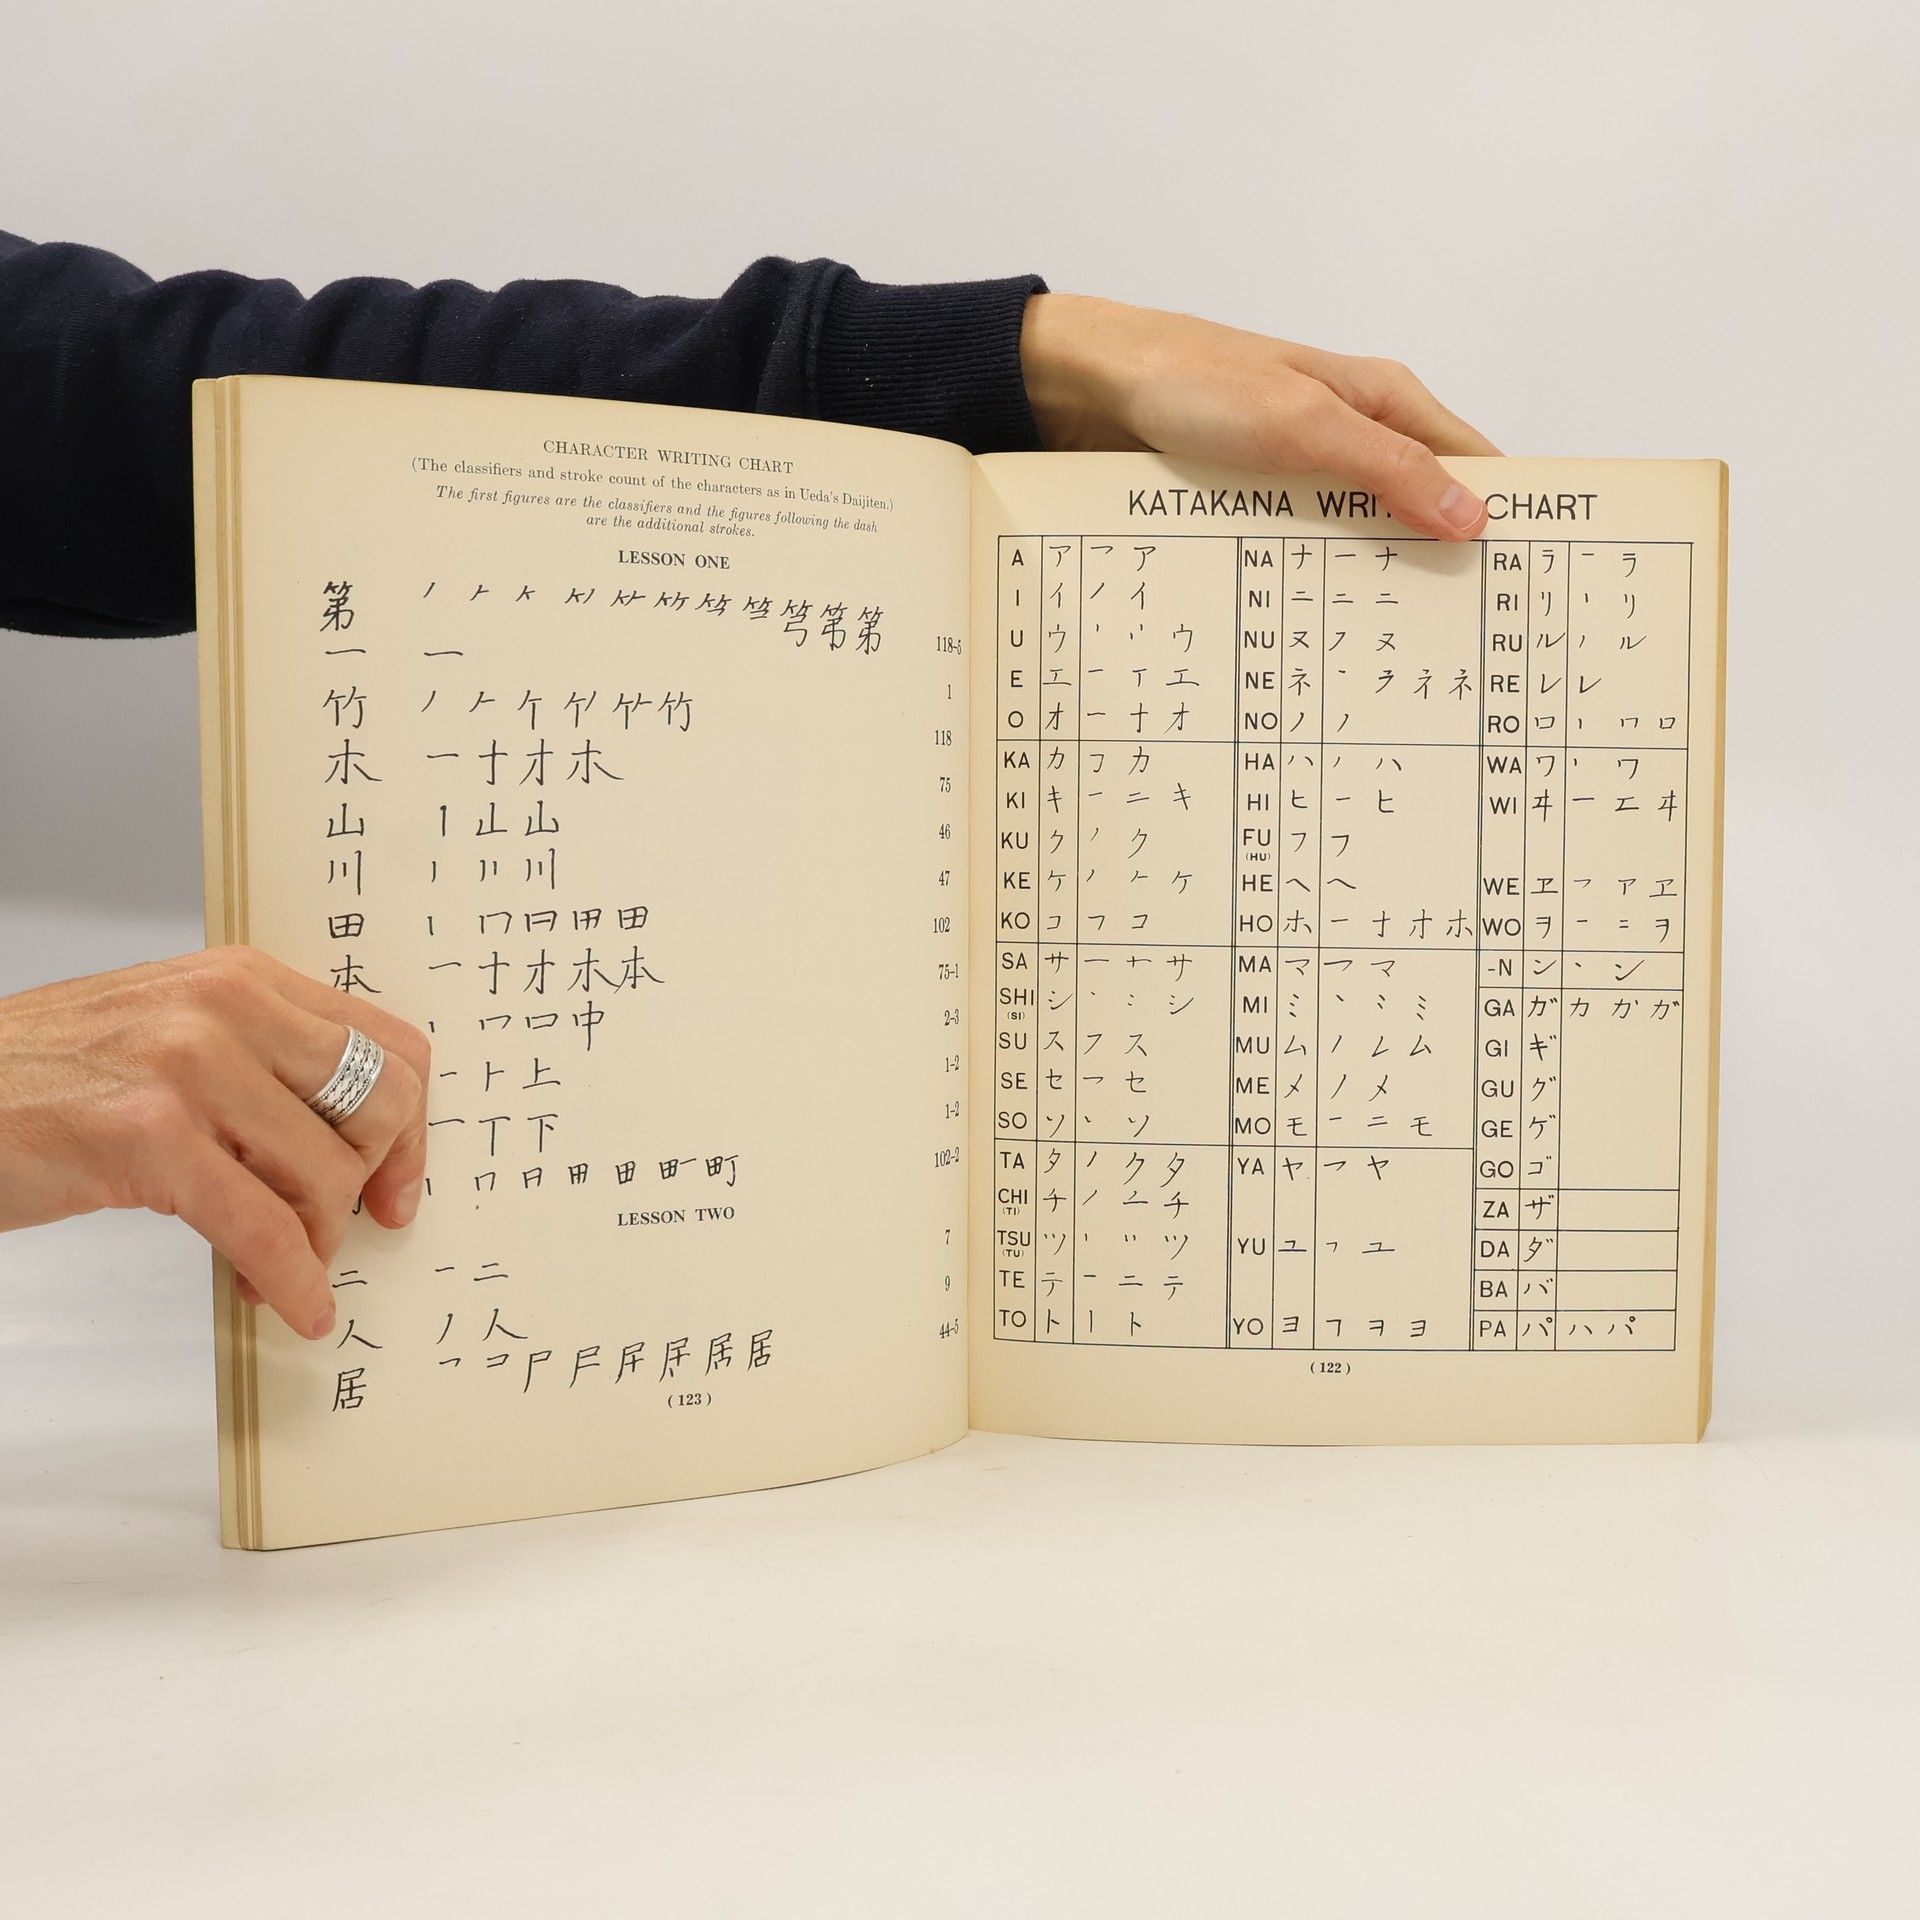 CHARACTER WRITING CHART
(The classifiers and stroke count of the characters as in Ueda's Daijiten.)
The first figures are the classifiers and the figures following the dash
are the additional strokes.
LESSON ONE
第 ノ 第 118-5
一 一 1
竹 ノ 竹 118
木 一 十 才 木 75
山 丨 山 46
川 川 47
田 丨 冂 日 田 102
本 一 十 才 木 本 75-1
丨 口 中 2-3
一 ト 上 1-2
一 丅 下 1-2
丨 冂 日 田 町 102-2
LESSON TWO
二 一 二 7
人 ノ 人 9
居 コ 尸 居 44-5
(123)
KATAKANA WRI CHART
A ア フ ア
I イ ノ イ
U ウ 丶 ウ
E エ 一 丅 エ
O オ 一 十 オ
KA カ フ カ
KI キ 一 二 キ
KU ク ノ ク
KE ケ ノ 𠂉 ケ
KO コ フ コ
SA サ 一 十 サ
SHI (SI) シ 丶 シ
SU ス フ ス
SE セ フ セ
SO ソ 丶 ソ
TA タ ノ ク タ
CHI (TI) チ ノ 二 チ
TSU (TU) ツ 丶 ツ
TE テ 一 二 テ
TO ト 丨 ト
NA ナ 一 ナ
NI ニ 二 ニ
NU ヌ フ ヌ
NE ネ 丶 ラ ネ ネ
NO ノ ノ
HA ハ ノ ハ
HI ヒ 一 ヒ
FU (HU) フ フ
HE ヘ ヘ
HO ホ 一 十 オ ホ
MA マ フ マ
MI ミ 丶 ミ
MU ム ノ レ ム
ME メ ノ メ
MO モ 一 二 モ
YA ヤ フ ヤ
YU ユ フ ユ
YO ヨ フ ヲ ヨ
RA ラ 一 ラ
RI リ 丨 リ
RU ル ノ ル
RE レ レ
RO ロ 丨 冂 ロ
WA ワ 丨 ワ
WI ヰ 一 エ ヰ
WE ヱ フ ア ヱ
WO ヲ 一 二 ヲ
-N ン 丶 ン
GA ガ カ カ ガ
GI ギ
GU グ
GE ゲ
GO ゴ
ZA ザ
DA ダ
BA バ
PA パ ハ パ
(122)